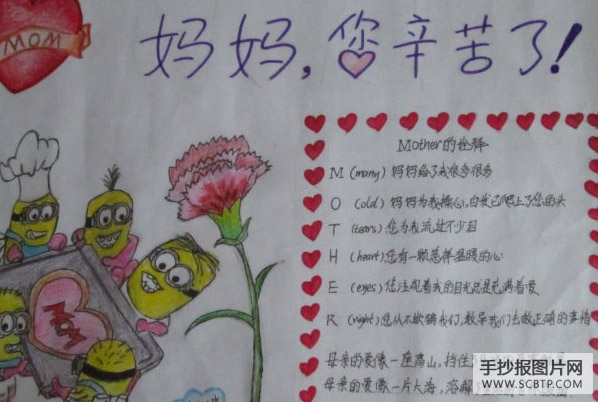 MOM
妈妈,您辛苦了!
Mother的诠释
M (many) 妈妈给了我很多很多
O (old) 妈妈为我操心,白发已爬上了您的头
T (tears) 您为我流过不少泪
H (heart) 您有一颗慈祥温暖的心
E (eyes) 您注视着我的目光总是充满着爱
R (right) 您从不欺骗我们,教导我们去做正确的事情
母亲的爱像一座高山,挡住
母亲的爱像一片大海,溶解
MOM
手抄报图片网
WWW.SCBTP.COM